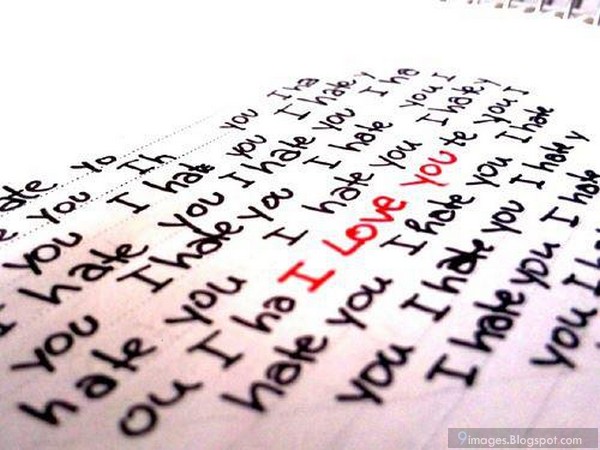 ate yo
e you I h you I ha
you I hate you I hate y
I hate you I hate you I ha
you I hate you I hate you I
hate you I hate you I hate y
ou I ha I LOVE you te you I
hate you I hate you I hate
you I hate you I hate y
I hate you I hate
you I
9images.Blogspot.com